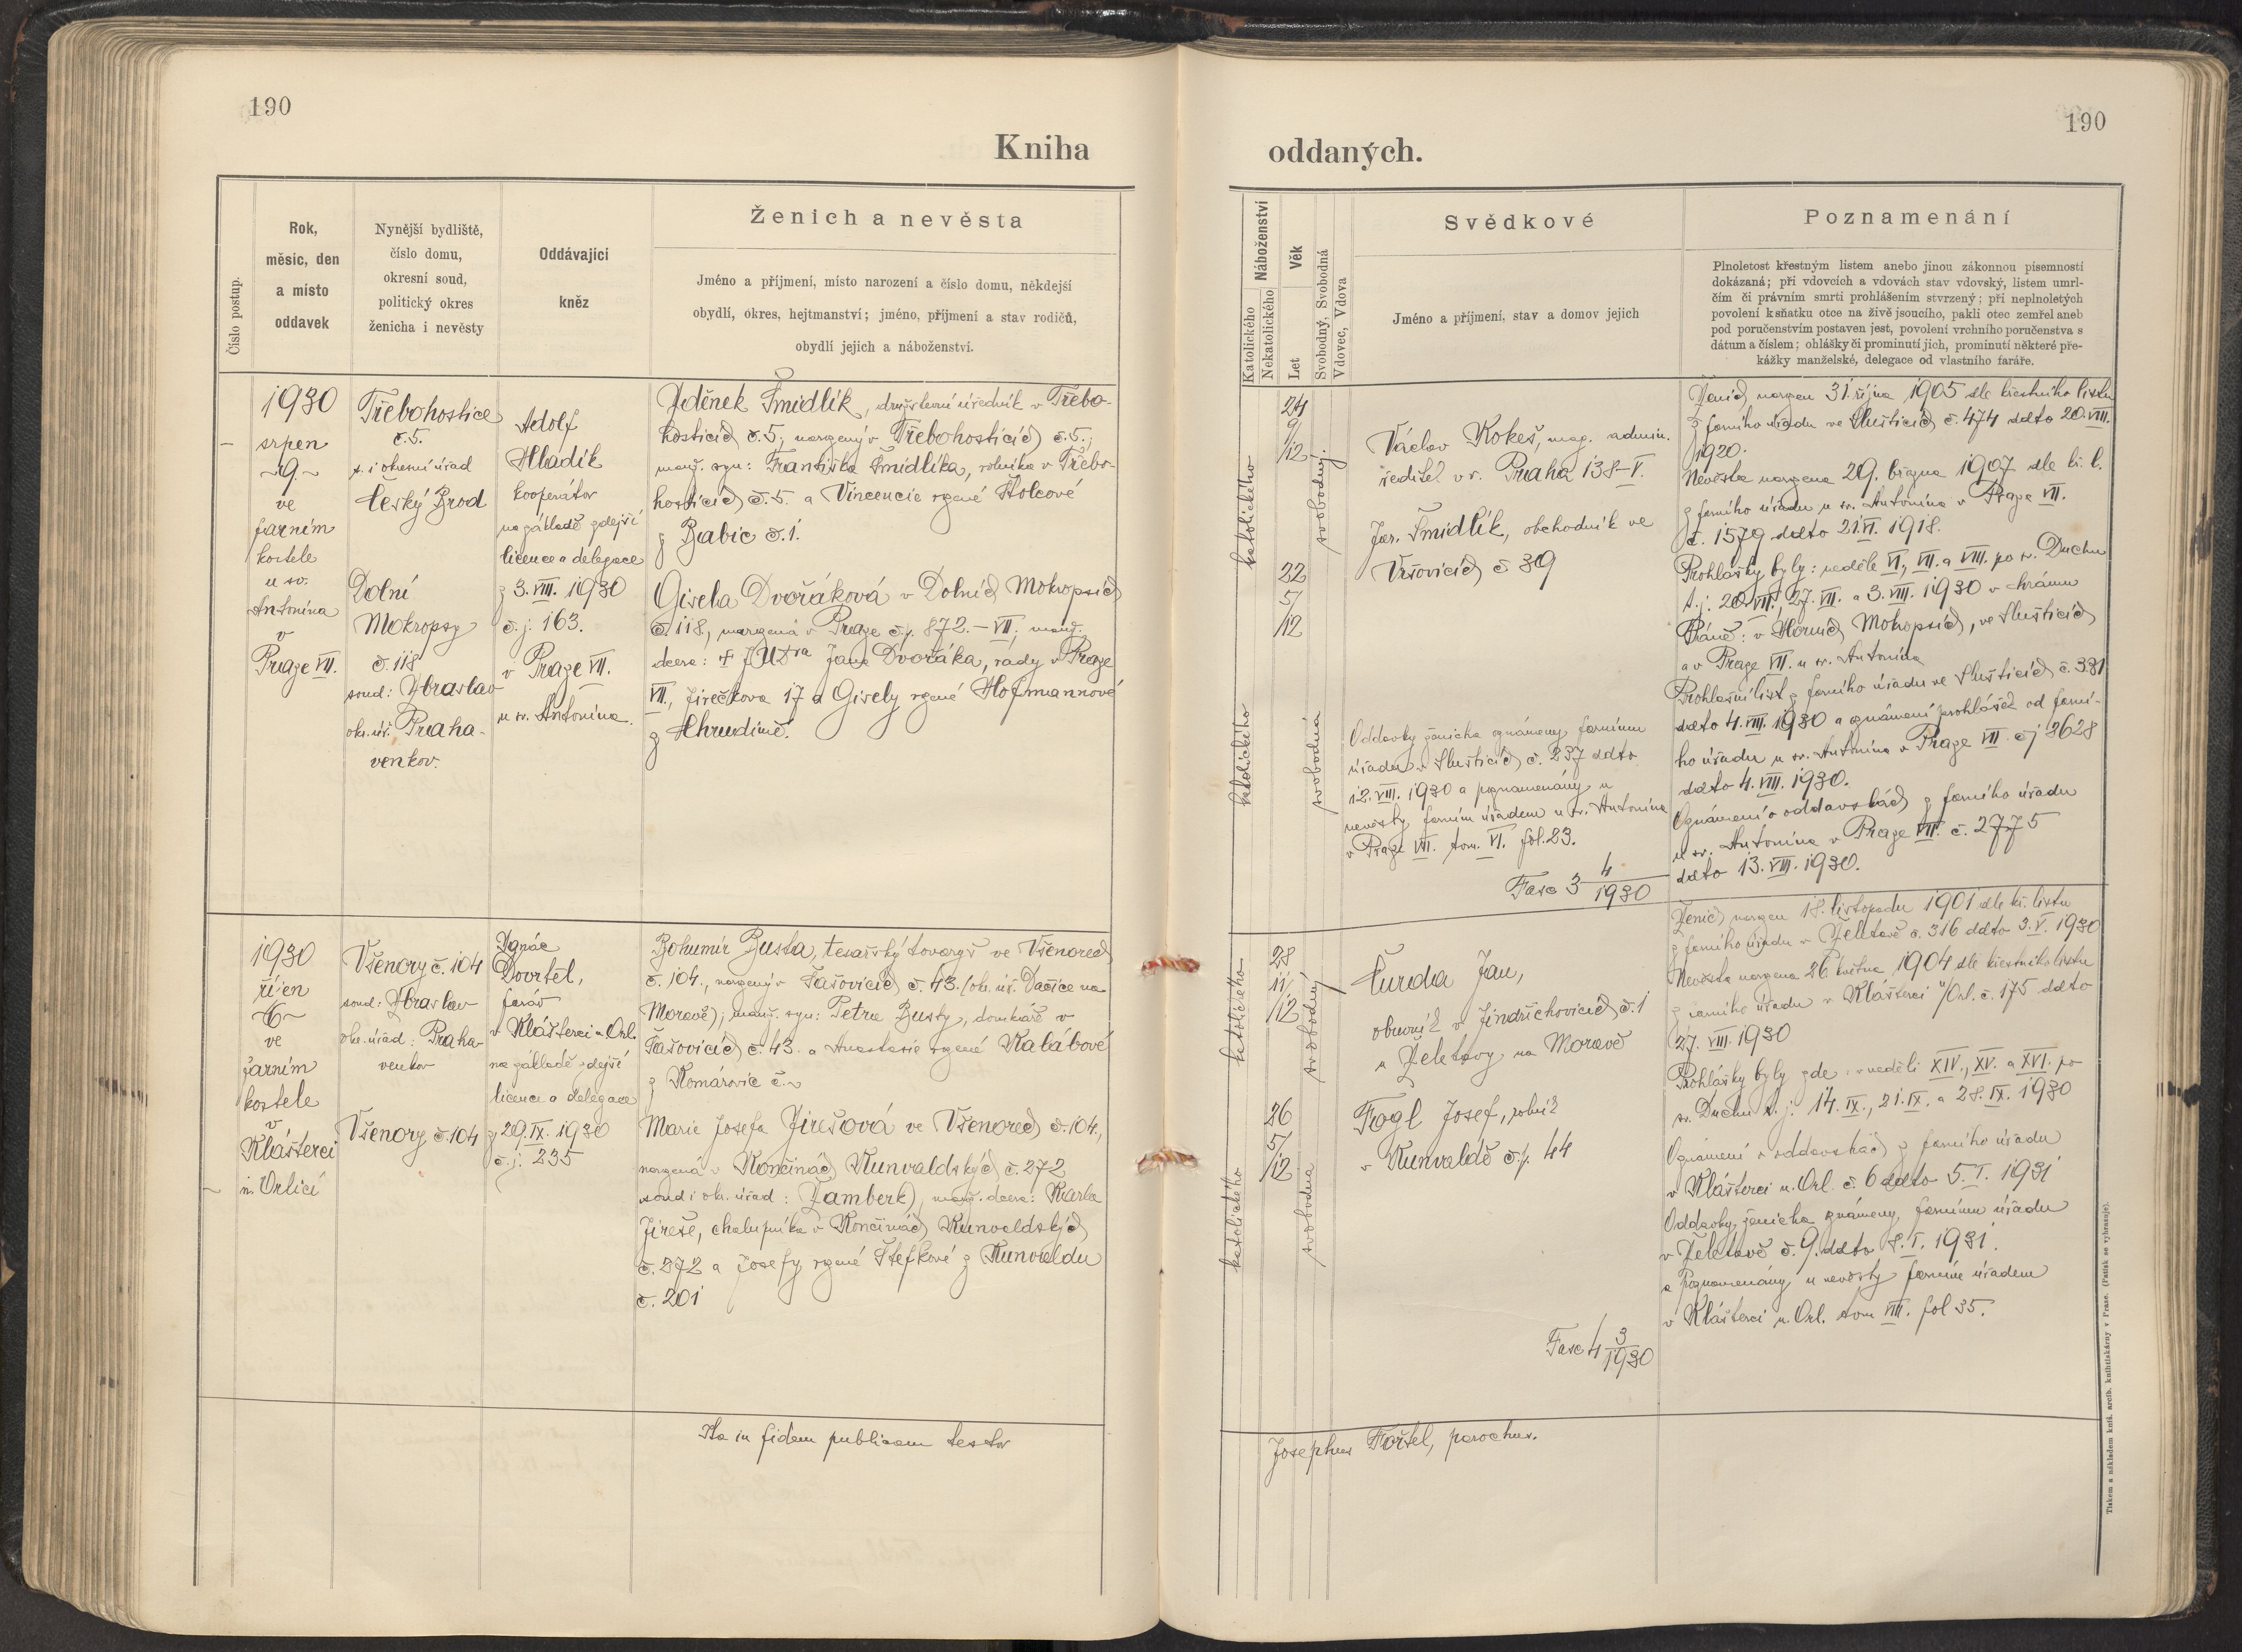 190
190
Kniha
oddaných.
Číslo postup.
Rok,
měsíc, den
a místo
oddavek
Nynější bydliště,
číslo domu,
okresní soud,
politický okres
ženicha i nevěsty
Oddávající
kněz
Ženich a nevěsta
Jméno a příjmení, místo narození a číslo domu, někdejší
obydlí, okres, hejtmanství; jméno, příjmení a stav rodičů,
obydlí jejich a náboženství.
Náboženství
Katolického
Nekatolického
Věk
Let
Svobodný, Svobodná
Vdovec, Vdova
Svědkové
Jméno a příjmení, stav a domov jejich
Poznamenání
Plnoletost křestným listem anebo jinou zákonnou písemností
dokázaná; při vdovcích a vdovách stav vdovský, listem umrl-
čím či právním smrti prohlášením stvrzený; při neplnoletých
povolení k sňatku otce na živě jsoucího, pakli otec zemřel aneb
pod poručenstvím postaven jest, povolení vrchního poručenstva s
dátum a číslem; ohlášky či prominutí jich, prominutí některé pře-
kážky manželské, delegace od vlastního faráře.
1930
srpen
~9.~
ve
farním
kostele
u sv.
Antonína
v
Praze VII.
Třebohostice
č. 5.
s. i okresní úřad
Český Brod
Dolní
Mokropsy
č. 118
soud: Zbraslav
okr. úř. Praha-
venkov.
Adolf
Hladík
kooperátor
na základě zdejší
licence a delegace
z 3. VIII. 1930
č. j. 163.
v Praze VII.
u sv. Antonína.
Zděnek Šmidlík, družstevní úředník v Třebo-
hosticích č. 5; narozený v Třebohosticích č. 5.;
manž. syn: Františka Šmidlíka, rolníka v Třebo-
hosticích č. 5. a Vincencie rozené Holcové
z Babic č. 1.
Gisela Dvořáková v Dolních Mokropsích
č. 118, narozená v Praze čp. 872.-VII; manž.
dcera: † JUDra Jana Dvořáka, rady v Praze
VII, Jirečkova 17 a Gisely rozené Hofmannové
z Chrudimě.
24
9/
/12
22
5/
/12
katolického
svobodný.
katolického
svobodná
Václav Kokeš, mag. admin.
ředitel v v. Praha 138-V.
Jar. Šmidlík, obchodník ve
Vršovicích č 39
Oddavky ženicha oznámeny farnímu
úřadu v Slušticích č. 237 ddto
12. VIII. 1930 a poznamenány u
nevěsty farním úřadem u sv. Antonína
v Praze VII. tom. VI. fol. 23.
Fasc 3 4/1930
Ženich narozen 31. října 1905 dle křestního listu
z farního úřadu ve Slušticích č. 474 ddto 20. VIII.
1920.
Nevěsta narozena 29. března 1907 dle kř. l.
z farního úřadu u sv. Antonína v Praze VII.
č. 1579 ddto 21. VI. 1918.
Prohlášky byly: neděle VI., VII. a VIII. po sv. Duchu
t. j. 20. VII., 27. VII. a 3. VIII. 1930 v chrámu
Páně: v Horních Mokropsích, ve Slušticích
a v Praze VII. u sv. Antonína
Prohlašní list z farního úřadu ve Slušticích č. 381
ddto 4. VIII. 1930 a oznámení prohlášek od farní-
ho úřadu u sv. Antonína v Praze VII čj 2628
ddto 4. VIII. 1930.
Oznámení o oddavkách z farního úřadu
u sv. Antonína v Praze VII. č. 2775
ddto 13. VIII. 1930.
1930
říjen
~6~
ve
farním
kostele
v
Klášterci
n. Orlicí
Všenory č. 104
soud: Zbraslav
okr. úřad: Praha-
venkov
Všenory č. 104
Ignác
Dovrtěl,
farář
v Klášterci n. Orl.
na základě zdejší
licence a delegace
z 29. IX. 1930
č. j. 235
Bohumír Busta, tesařský tovaryš ve Všenorech
č. 104., narozený v Žašovicích č. 43. (okr. úř. Dačice na
Moravě); manž. syn: Petra Busty, domkáře v
Žašovicích č. 43. a Anastasie rozené Kalábové
z Komárovic č. ~
Marie Josefa Jirešová ve Všenorech č. 104,
narozená v Končinách Kunvaldských č. 272
soud i okr. úřad: Žamberk), manž. dcera: Karla
Jireše, chalupníka v Končinách Kunvaldských
č. 272 a Josefy rozené Štefkové z Kunvaldu
č. 201
28
11/
/12
26
5/
/12
katolického
svobodný
katolického
svobodná
Čurda Jan,
obuvník v Jindřichovicích č. 1
u Želetavy na Moravě
Fogl Josef, rolník
v Kunvaldě čp. 44
Fasc 4 3/1930
Ženich narozen 18. listopadu 1901 dle kř. listu
z farního úřadu v Želetavě č. 316 ddto 3. V. 1930
Nevěsta narozena 26. května 1904 dle křestního listu
z farního úřadu v Klášterci n/Orl. č. 175 ddto
27. VIII. 1930
Prohlášky byly zde: v neděli XIV., XV. a XVI. po
sv. Duchu t. j. 14. IX., 21. IX. a 28. IX. 1930
Oznámení o oddavkách z farního úřadu
v Klášterci n. Orl. č. 6 ddto 5. I. 1931
Oddavky ženicha oznámeny farnímu úřadu
v Želetavě č. 9. ddto 8. I. 1931.
a Poznamenány u nevěsty farním úřadem
v Klášterci n. Orl. tom VIII. fol 35.
Ita in fidem publicam testor
Josephus Fořtel, parochus.
Tiskem a nákladem kníž. arcib. knihtiskárny v Praze. (Patisk se vyhrazuje).